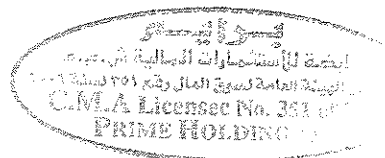 القابضة للاستثمارات المالية ش.م.م.
الهيئة العامة لسوق المال رقم ٣٥١ لسنة
C.M.A Licensee No. 351
PRIME HOLDING